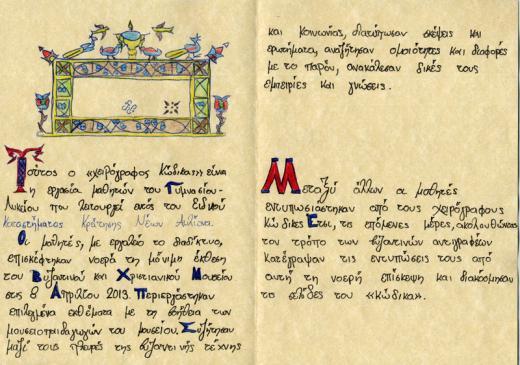 Τούτος ο «χειρόγραφος Κώδικας» είναι
η εργασία μαθητών του Γυμνασίου-
Λυκείου που λειτουργεί εντός του Ειδικού
Καταστήματος Κράτησης Νέων Αυλώνα.
Οι μαθητές, με εργαλείο το διαδίκτυο,
επισκέφτηκαν νοερά τη μόνιμη έκθεση
του Βυζαντινού και Χριστιανικού Μουσείου
στις 8 Απριλίου 2013. Περιεργάστηκαν
επιλεγμένα εκθέματα με τη βοήθεια των
μουσειοπαιδαγωγών του μουσείου. Συζήτησαν
μαζί τους πλευρές της βυζαντινής τέχνης
και κοινωνίας, διατύπωσαν σκέψεις και
ερωτήματα, αναζήτησαν ομοιότητες και διαφορές
με το παρόν, ανακάλεσαν δικές τους
εμπειρίες και γνώσεις.
Μεταξύ άλλων οι μαθητές
εντυπωσιάστηκαν από τους χειρόγραφους
Κώδικες. Έτσι, τις επόμενες μέρες, ακολουθώντας
τον τρόπο των βυζαντινών αντιγραφέων
κατέγραψαν τις εντυπώσεις τους από
αυτή τη νοερή επίσκεψη και διακόσμησαν
τις σελίδες του «κώδικα».